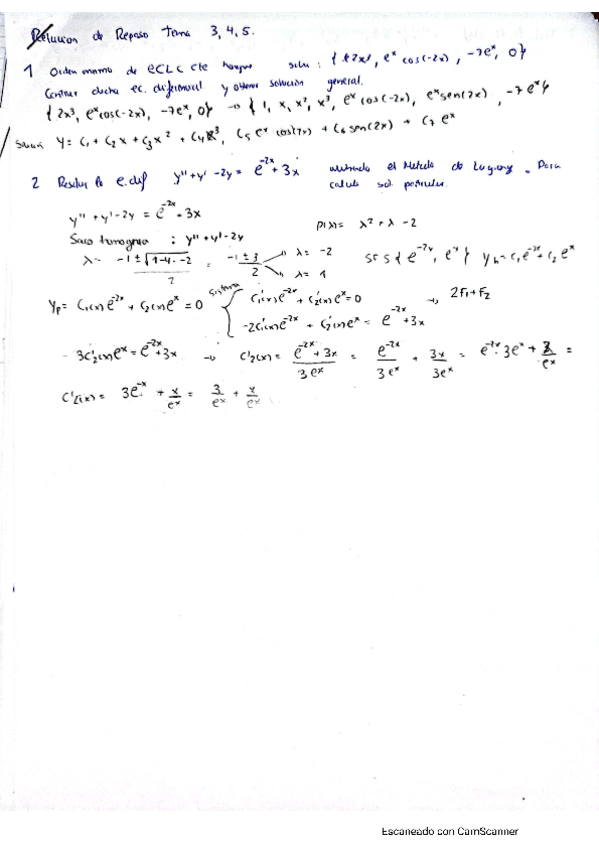 Relucion de Reposo tema 3, 4, 5.
1 Orden mnmo de ECLC cte tengue solu : { 2x³, eˣ cos(-2x), -7eˣ, 0}
dicha ec. diferencial y obtener solución general.
{ 2x³, eˣcos(-2x), -7eˣ, 0} → { 1, x, x², x³, eˣ cos(-2x), eˣsen(2x), -7eˣ}
Y = C₁ + C₂x + C₃x² + C₄x³, C₅ eˣ cos(2x) + C₆ sen(2x) + C₇ eˣ
2 Resolver la e.dif y'' + y' - 2y = e⁻²ˣ + 3x el Metodo de Lagrang. Para
calculo sol particular.
y'' + y' - 2y = e⁻²ˣ + 3x P(λ) = λ² + λ - 2
: y'' + y' - 2y
λ = (-1 ± √(1-4·-2))/2 = (-1 ± 3)/2 λ = -2 λ = 1 {e⁻²ˣ, eˣ} yₕ = C₁e⁻²ˣ + C₂eˣ
Yp = C₁(x)e⁻²ˣ + C₂(x)eˣ = 0 sistema { C₁'(x)e⁻²ˣ + C₂'(x)eˣ = 0 → 2F₁ + F₂
-2C₁'(x)e⁻²ˣ + C₂'(x)eˣ = e⁻²ˣ + 3x
3C₂'(x)eˣ = e⁻²ˣ + 3x → C'₂(x) = (e⁻²ˣ + 3x)/3eˣ = e⁻²ˣ/3eˣ + 3x/3eˣ = e⁻²ˣ·3eˣ + x/eˣ =
C'₂(x) = 3e⁻ˣ + x/eˣ = 3/eˣ + x/eˣ
Escaneado con CamScanner